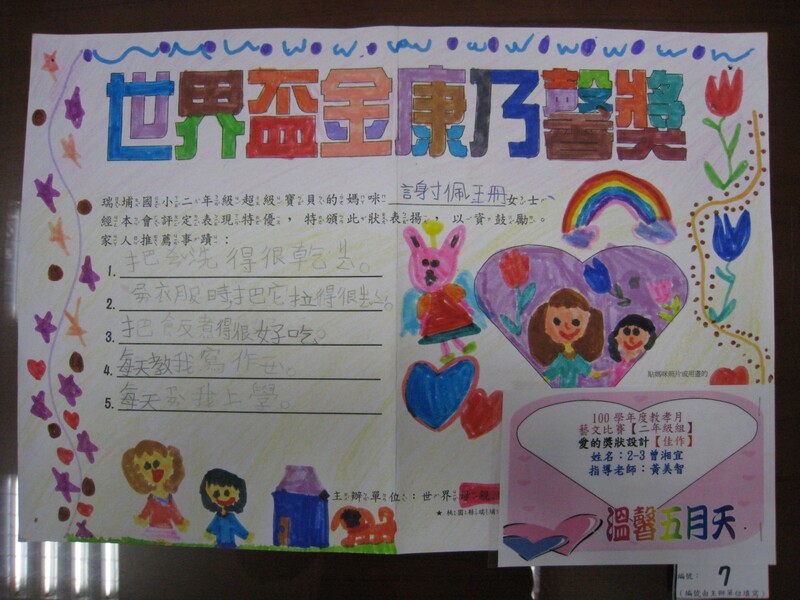 世界盃金康乃馨獎
瑞埔國小二年級超級寶貝的媽咪 謝佩珊 女士、
經本會評定表現特優，特頒此狀表揚，以資鼓勵。
家人推薦事蹟：
1. 把 洗得很乾 。
2. 衣服時把它拉得很 。
3. 把飯煮得很好吃。
4. 每天教我寫作 。
5. 每天 我上學。
貼媽咪照片或用畫的
主辦單位：世界母親
★ 桃園縣瑞埔
100學年度教孝月
藝文比賽【二年級組】
愛的獎狀設計【佳作】
姓名：2-3曾湘宜
指導老師：黃美智
溫馨五月天
編號： 7
(編號由主辦單位填寫)